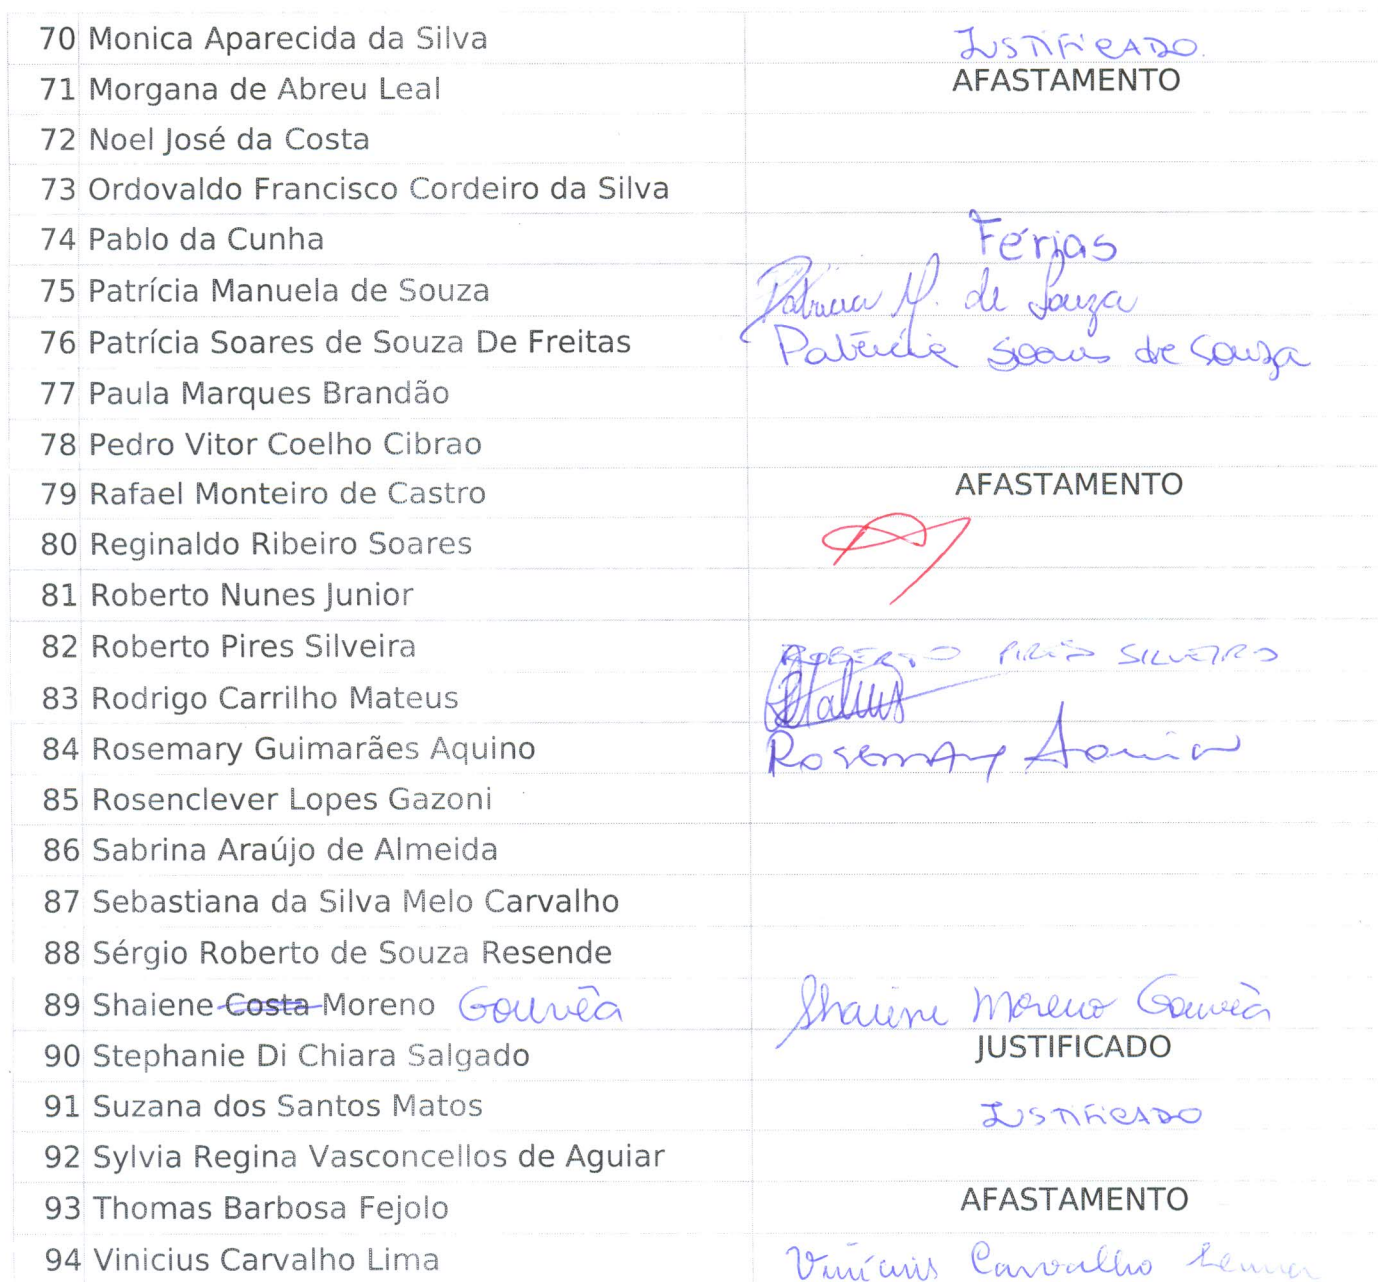 70 Monica Aparecida da Silva JUSTIFICADO.
71 Morgana de Abreu Leal AFASTAMENTO
72 Noel José da Costa
73 Ordovaldo Francisco Cordeiro da Silva
74 Pablo da Cunha Férias
75 Patrícia Manuela de Souza Patricia M. de Souza
76 Patrícia Soares de Souza De Freitas Patrícia Soares de Souza
77 Paula Marques Brandão
78 Pedro Vitor Coelho Cibrao
79 Rafael Monteiro de Castro AFASTAMENTO
80 Reginaldo Ribeiro Soares
81 Roberto Nunes Junior
82 Roberto Pires Silveira ROBERTO PIRES SILVEIRA
83 Rodrigo Carrilho Mateus
84 Rosemary Guimarães Aquino Rosemary Aquino
85 Rosenclever Lopes Gazoni
86 Sabrina Araújo de Almeida
87 Sebastiana da Silva Melo Carvalho
88 Sérgio Roberto de Souza Resende
89 Shaiene Costa Moreno Gouvêa Shaiene Moreno Gouvêa
90 Stephanie Di Chiara Salgado JUSTIFICADO
91 Suzana dos Santos Matos JUSTIFICADO
92 Sylvia Regina Vasconcellos de Aguiar
93 Thomas Barbosa Fejolo AFASTAMENTO
94 Vinicius Carvalho Lima Vinicius Carvalho